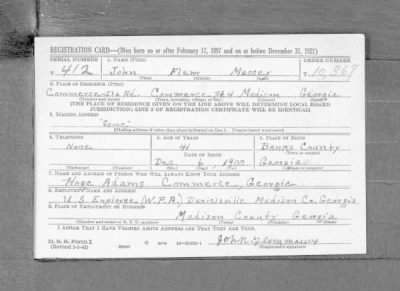 REGISTRATION CARD—(Men born on or after February 17, 1897 and on or before December 31, 1921)
SERIAL NUMBER 1. NAME (Print) ORDER NUMBER
T 412 John Flem Mercer T 10,367
(First) (Middle) (Last)
2. PLACE OF RESIDENCE (Print)
Commerce Rd. Commerce Rt 4 Madison Georgia
(Number and street) (Town, township, village, or city) (County) (State)
[THE PLACE OF RESIDENCE GIVEN ON THE LINE ABOVE WILL DETERMINE LOCAL BOARD
JURISDICTION; LINE 2 OF REGISTRATION CERTIFICATE WILL BE IDENTICAL]
3. MAILING ADDRESS
"Same"
[Mailing address if other than place indicated on line 2. If same insert word same]
4. TELEPHONE 5. AGE IN YEARS 6. PLACE OF BIRTH
None 41 Banks County
DATE OF BIRTH (Town or county)
Dec. 6, 1900 Georgia
(Exchange) (Number) (Mo.) (Day) (Yr.) (State or country)
7. NAME AND ADDRESS OF PERSON WHO WILL ALWAYS KNOW YOUR ADDRESS
Hope Adams Commerce, Georgia
8. EMPLOYER'S NAME AND ADDRESS
U.S. Employee (W.P.A.) Danielsville Madison Co. Georgia
9. PLACE OF EMPLOYMENT OR BUSINESS
Madison County Georgia
(Number and street or R. F. D. number) (Town) (County) (State)
I AFFIRM THAT I HAVE VERIFIED ABOVE ANSWERS AND THAT THEY ARE TRUE.
D. S. S. Form 1
(Revised 1-1-42) (over) 16—21630-1 John
(Registrant's signature)